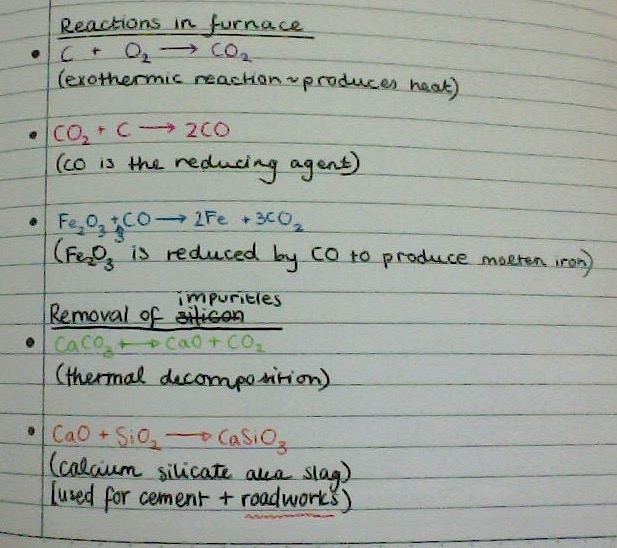 Reactions in furnace
• C + O₂ → CO₂
(exothermic reaction ~ produces heat)
• CO₂ + C → 2CO
(CO is the reducing agent)
• Fe₂O₃ + 3CO → 2Fe + 3CO₂
(Fe₂O₃ is reduced by CO to produce molten iron)
impurities
Removal of silicon
• CaCO₃ → CaO + CO₂
(thermal decomposition)
• CaO + SiO₂ → CaSiO₃
(calcium silicate aka slag)
(used for cement + roadworks)